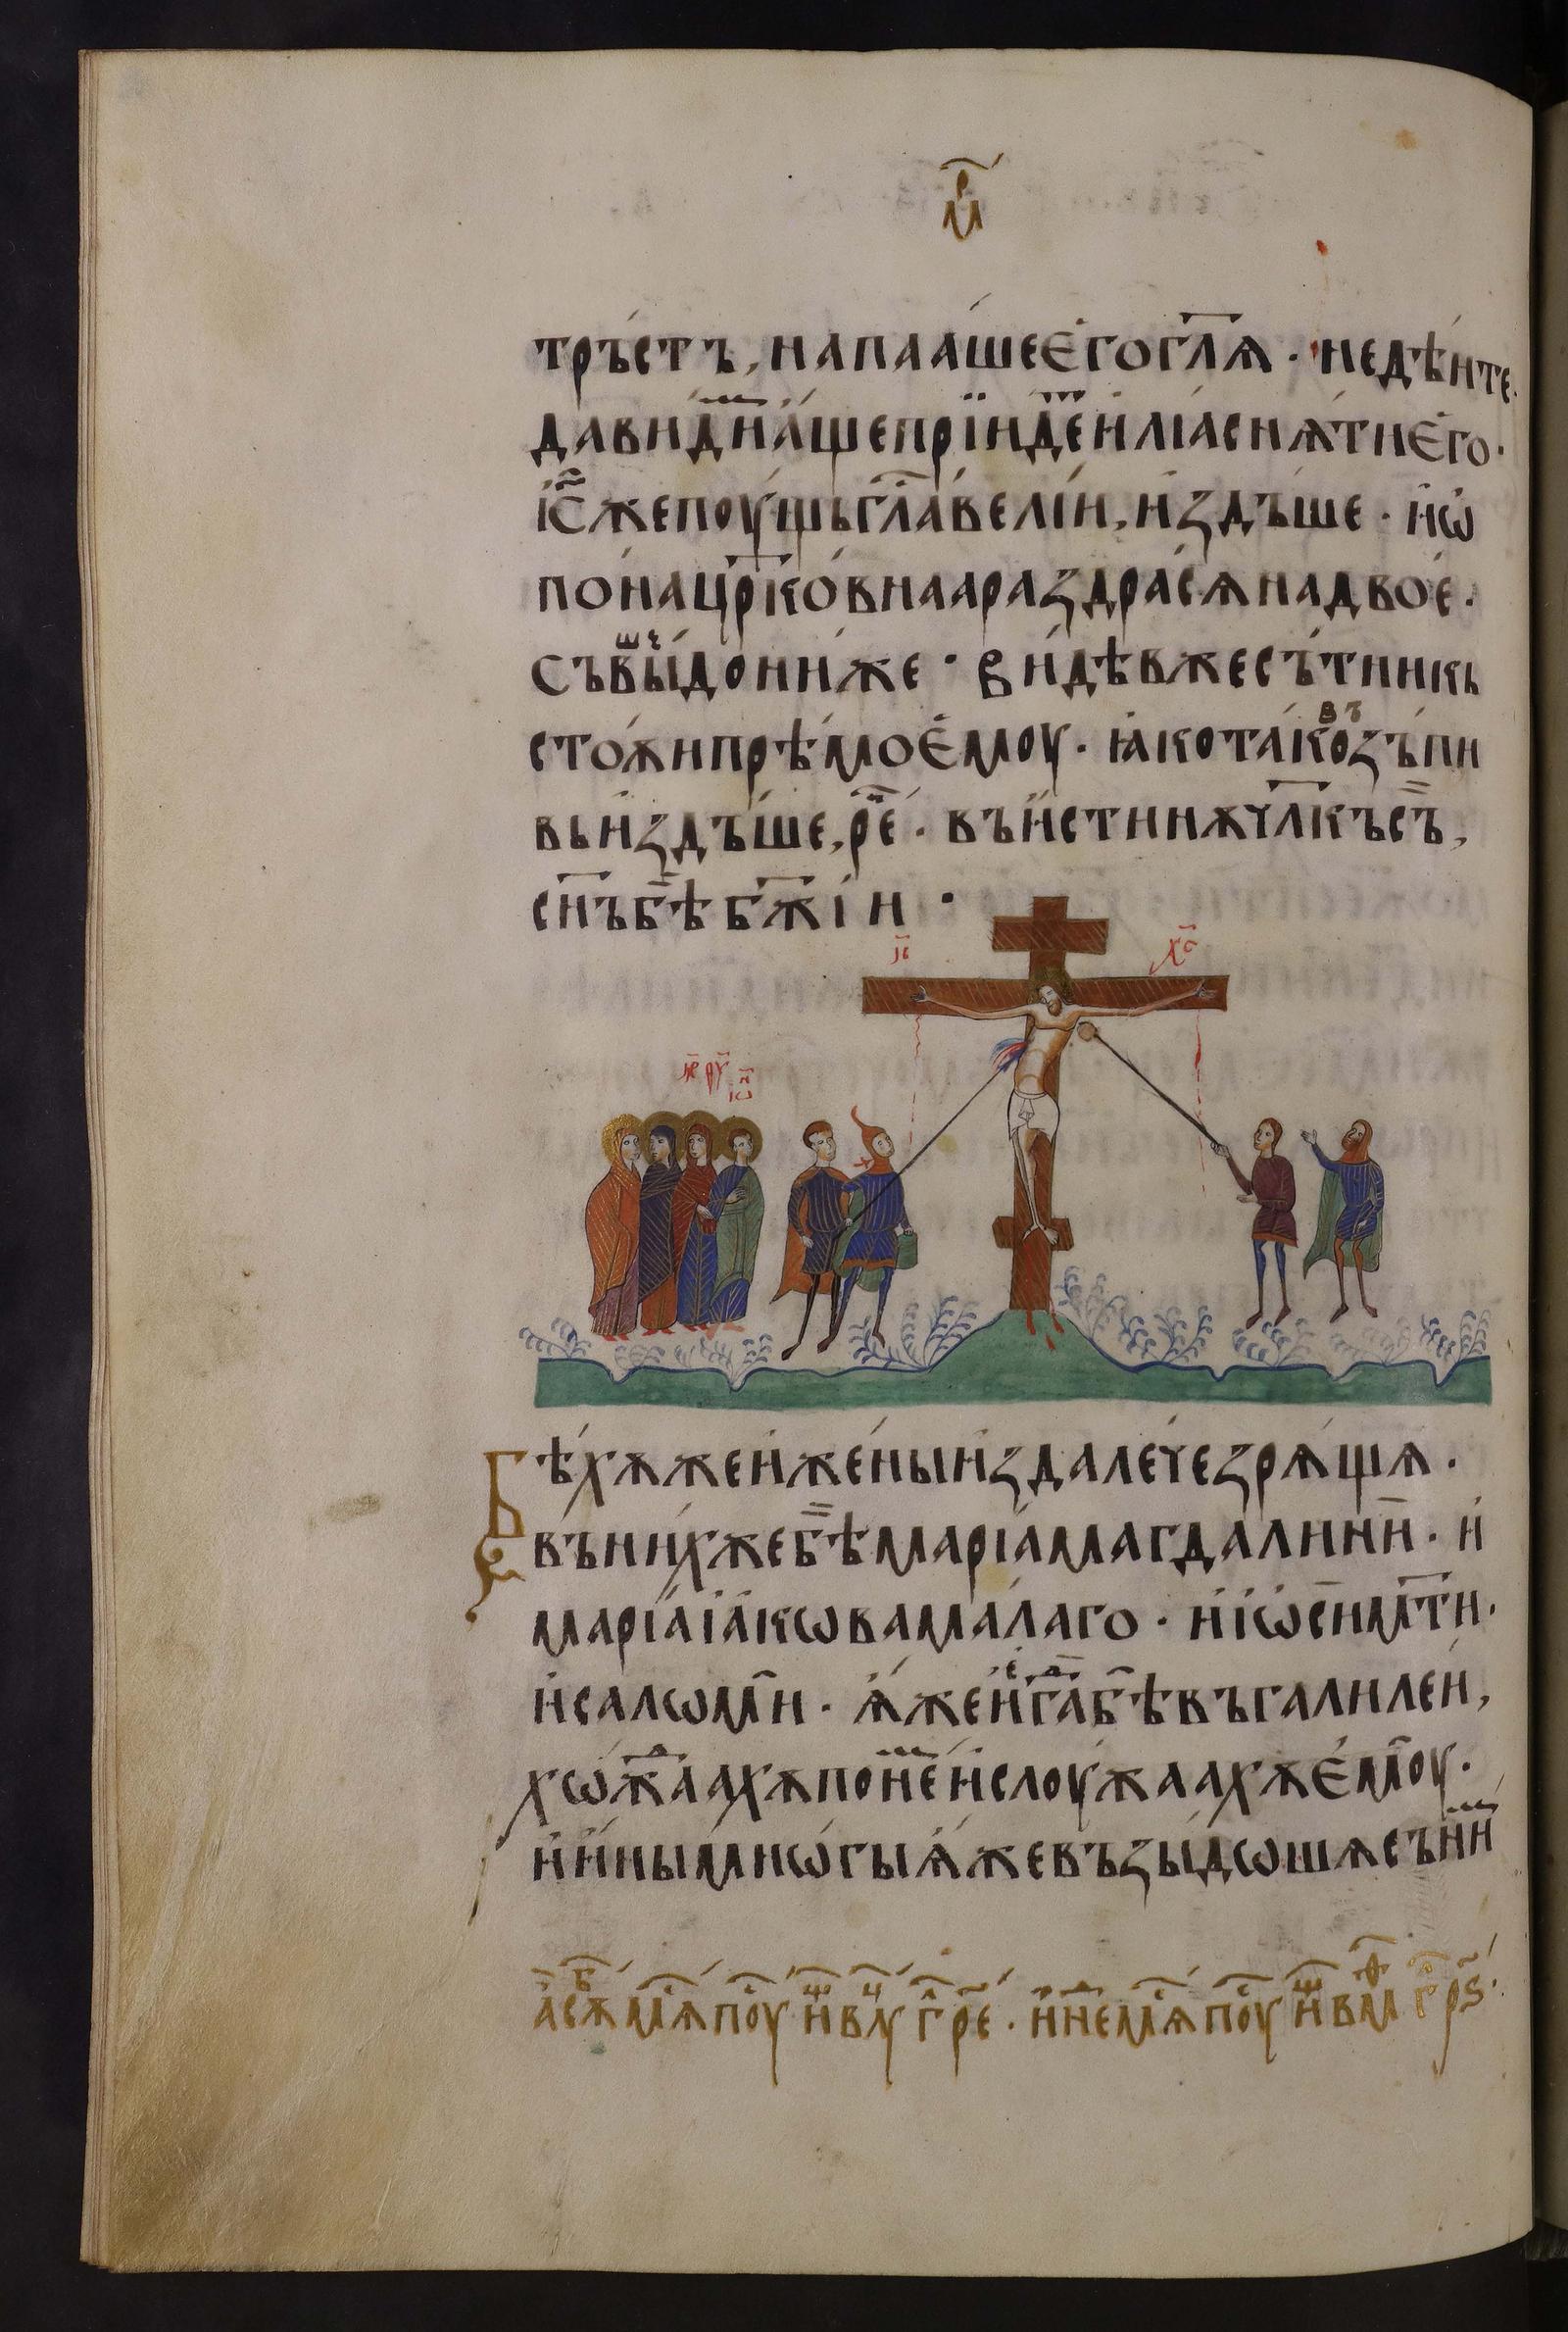 м҃р
тръ́стъ, напаа́ше є҆го гл҃ѧ · не дѣ́ите ·
да види́м а҆́ще прїи́дет и҆лїа́ снѧ́ти є҆го ·
і҆с҃ же поу́щь гла́с ве́лїи, и҆́здъше · и҆ ѡ҆
по́на цр҃ко́внаа раздра́ сѧ на дво́е ·
съ вы́ше до ни́же · ви́дѣв же съ́тникь
стоѫ́и прѣ́мо є҆́моу · ꙗ҆́ко та́ко възъпи
вь и҆́здъше, рече · въи҆́стинѫ чл҃къ съ,
сн҃ъ бѣ бж҃їи ·
і҆с хс
бѣ́хѫ же и҆ же́ны и҆здале́че зрѧ́щѧ ·
въ ни́хже бѣ марі́а магдалини · и҆
марі́а і҆а́кѡва ма́лаго · и҆ і҆ѡ́сии мт҃и ·
и҆ салѡми · ѧ҆́же и҆ є҆гда бѣ въ галиле́и,
хѡ́ждаахѫ по не́м и҆ слоу́жаахѫ є҆моу ·
и҆ и҆́ны мнѡ́гы ѧ҆́же възы́дѡшѧ съ ни́м